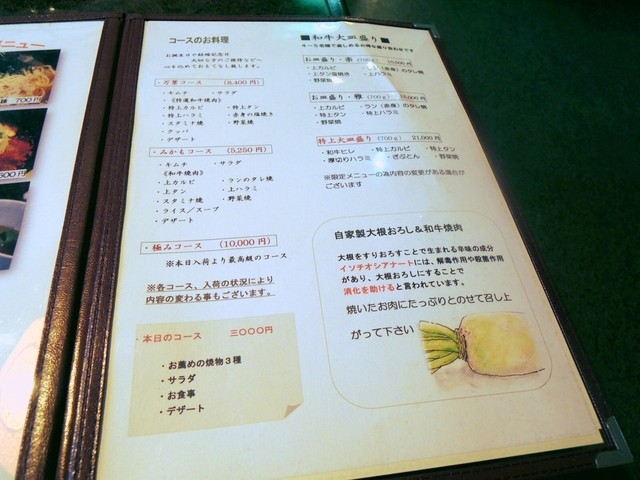 メニュー
700円
500円
コースのお料理
お誕生日や結婚記念日
大切な方のご接待など…
心を込めておもてなし致します。
・万葉コース (8,400円)
・キムチ ・サラダ
・《特選和牛焼肉》
・特上カルビ ・特上タン
・特上ハラミ ・赤身の塩焼き
・スタミナ焼 ・野菜焼
・クッパ
・デザート
・みかもコース (5,250円)
・キムチ ・サラダ
《和牛焼肉》
・上カルビ ・ランのタレ焼
・上タン ・上ハラミ
・スタミナ焼 ・野菜焼
・ライス/スープ
・デザート
・極みコース (10,000円)
※本日入荷より最高級のコース
※各コース、入荷の状況により
内容の変わる事もございます。
・本日のコース 三〇〇〇円
・お薦めの焼物3種
・サラダ
・お食事
・デザート
■和牛大皿盛り■
4~5名様で楽しめるお得な盛り合わせです
お皿盛り・楽 (700g)
・上カルビ (赤身)のタレ焼
・上タン塩焼き ・上ハラミ
・野菜焼
お皿盛り・雅 (700g)
・上カルビ ・ラン(赤身)のタレ焼
・特上タン ・特上ハラミ
・野菜焼
特上大皿盛り (700g) 21,000円
・和牛ヒレ ・特上カルビ ・特上タン
・厚切りハラミ ・ざぶとん ・野菜焼
※限定メニューの為内容の変更がある場合が
ございます
自家製大根おろし&和牛焼肉
大根をすりおろすことで生まれる辛味の成分
イソチオシアナートには、解毒作用や殺菌作用
があり、大根おろしにすることで
消化を助けると言われています。
焼いたお肉にたっぷりとのせて召し上
がって下さい